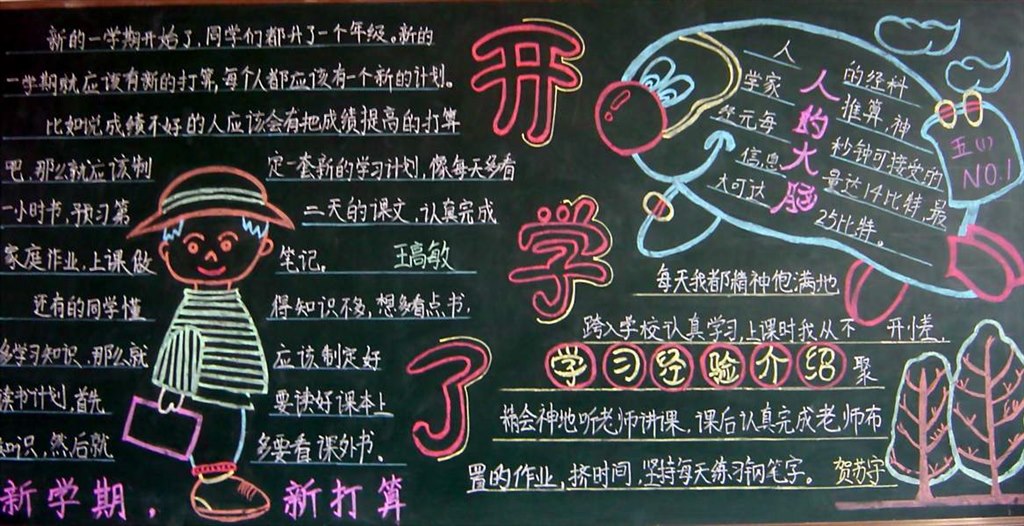 新的一学期开始了,同学们都升了一个年级。新的
一学期就应该有新的打算,每个人都应该有一个新的计划。
比如说成绩不好的人应该会有把成绩提高的打算
吧,那么就应该制定一套新的学习计划,像每天多看
一小时书,预习第二天的课文,认真完成
家庭作业,上课做笔记。 王高敏
还有的同学懂得知识不多,想多看点书
多学习知识,那么就应该制定好
读书计划,首先要读好课本上
知识,然后就多要看课外书。
新学期,新打算
开
学
了
人的大脑
人
学家的经科
終元每推算,神
信息秒钟可接受的
大可达量达14比特,最
25比特。
五(1)
NO.1
每天我都精神饱满地
跨入学校认真学习,上课时我从不开小差,
学习经验介绍 聚
精会神地听老师讲课,课后认真完成老师布
置的作业,挤时间,坚持每天练习钢笔字。 贺苏宇